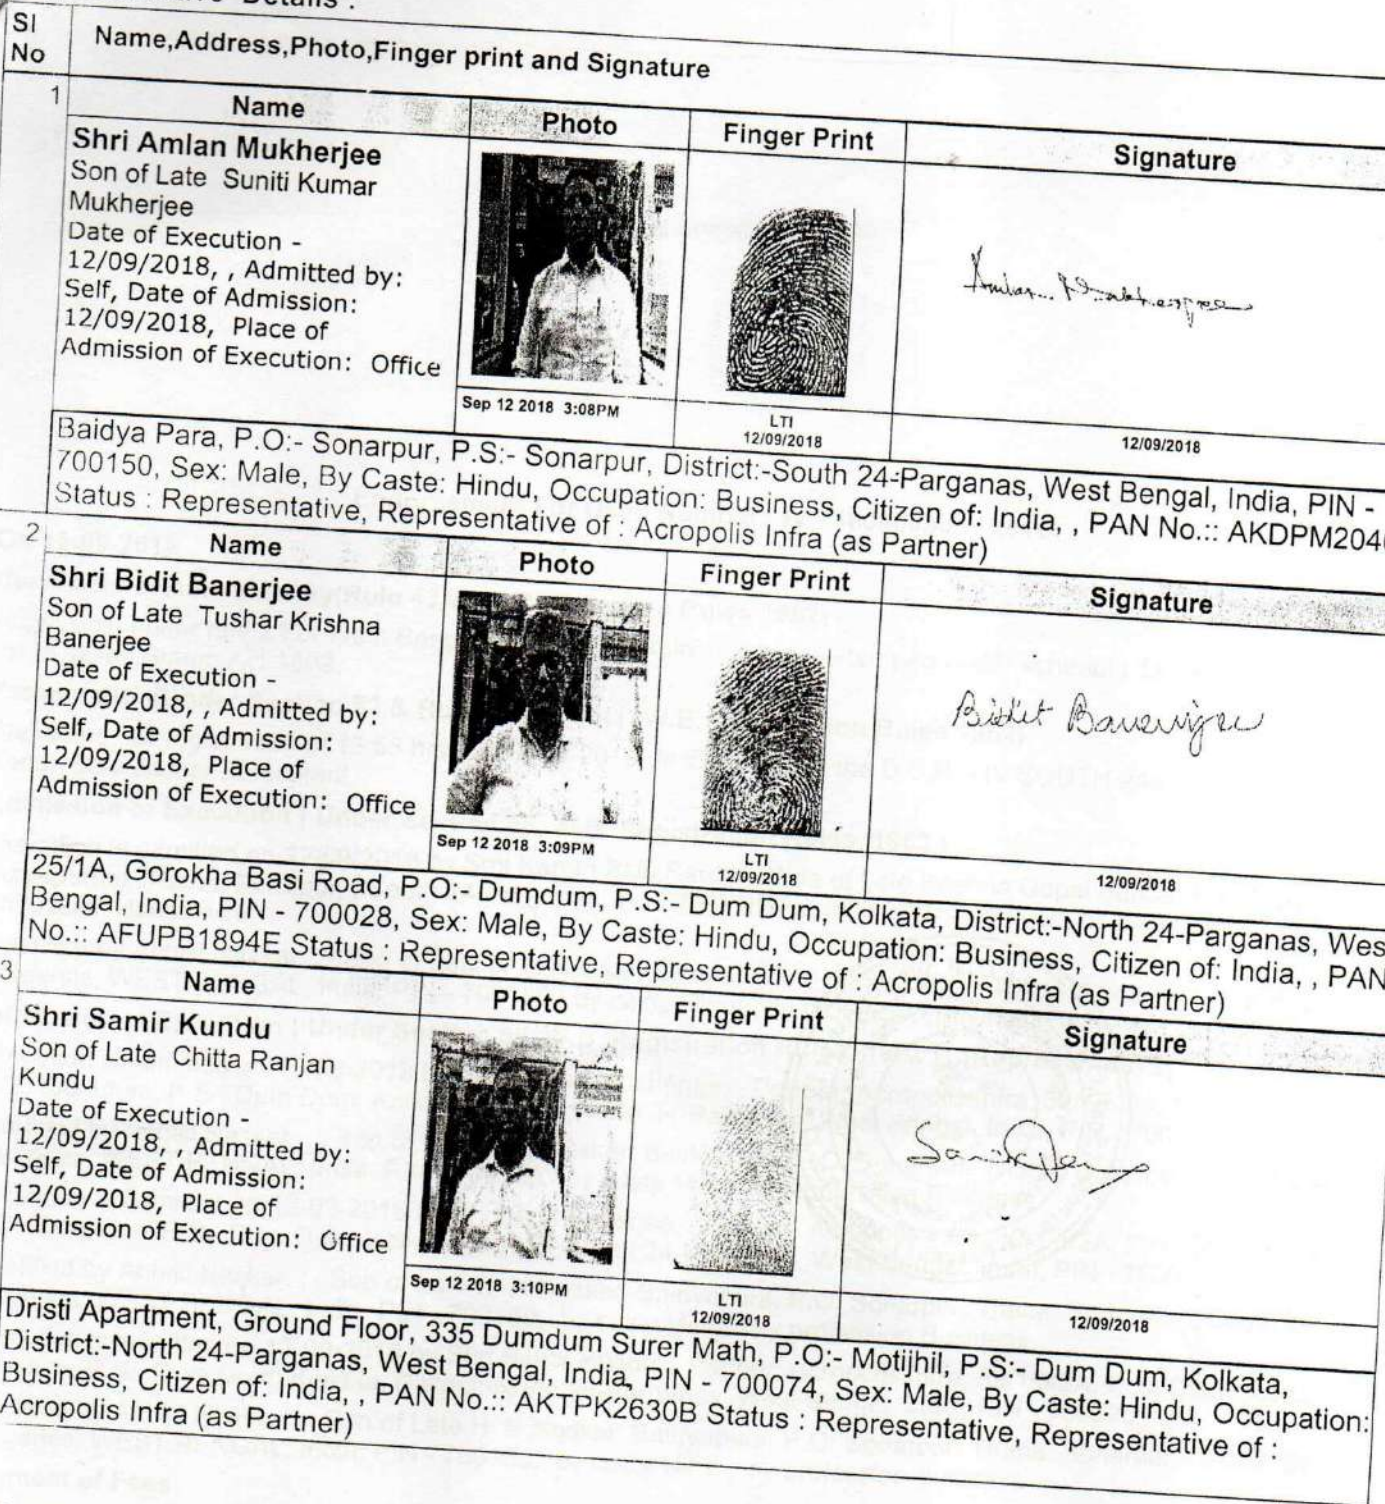 Details :
Sl No
Name,Address,Photo,Finger print and Signature
1
Name
Photo
Finger Print
Signature
Shri Amlan Mukherjee
Son of Late Suniti Kumar
Mukherjee
Date of Execution -
12/09/2018, , Admitted by:
Self, Date of Admission:
12/09/2018, Place of
Admission of Execution: Office
Amlan Mukherjee
Sep 12 2018 3:08PM
LTI
12/09/2018
12/09/2018
Baidya Para, P.O:- Sonarpur, P.S:- Sonarpur, District:-South 24-Parganas, West Bengal, India, PIN -
700150, Sex: Male, By Caste: Hindu, Occupation: Business, Citizen of: India, , PAN No.::
Status : Representative, Representative of : Acropolis Infra (as Partner)
2
Name
Photo
Finger Print
Signature
Shri Bidit Banerjee
Son of Late Tushar Krishna
Banerjee
Date of Execution -
12/09/2018, , Admitted by:
Self, Date of Admission:
12/09/2018, Place of
Admission of Execution: Office
Bidit Banerjee
Sep 12 2018 3:09PM
LTI
12/09/2018
12/09/2018
25/1A, Gorokha Basi Road, P.O:- Dumdum, P.S:- Dum Dum, Kolkata, District:-North 24-Parganas, Wes
Bengal, India, PIN - 700028, Sex: Male, By Caste: Hindu, Occupation: Business, Citizen of: India, , PAN
No.:: AFUPB1894E Status : Representative, Representative of : Acropolis Infra (as Partner)
3
Name
Photo
Finger Print
Signature
Shri Samir Kundu
Son of Late Chitta Ranjan
Kundu
Date of Execution -
12/09/2018, , Admitted by:
Self, Date of Admission:
12/09/2018, Place of
Admission of Execution: Office
Sep 12 2018 3:10PM
LTI
12/09/2018
12/09/2018
Dristi Apartment, Ground Floor, 335 Dumdum Surer Math, P.O:- Motijhil, P.S:- Dum Dum, Kolkata,
District:-North 24-Parganas, West Bengal, India, PIN - 700074, Sex: Male, By Caste: Hindu, Occupation:
Business, Citizen of: India, , PAN No.:: AKTPK2630B Status : Representative, Representative of :
Acropolis Infra (as Partner)